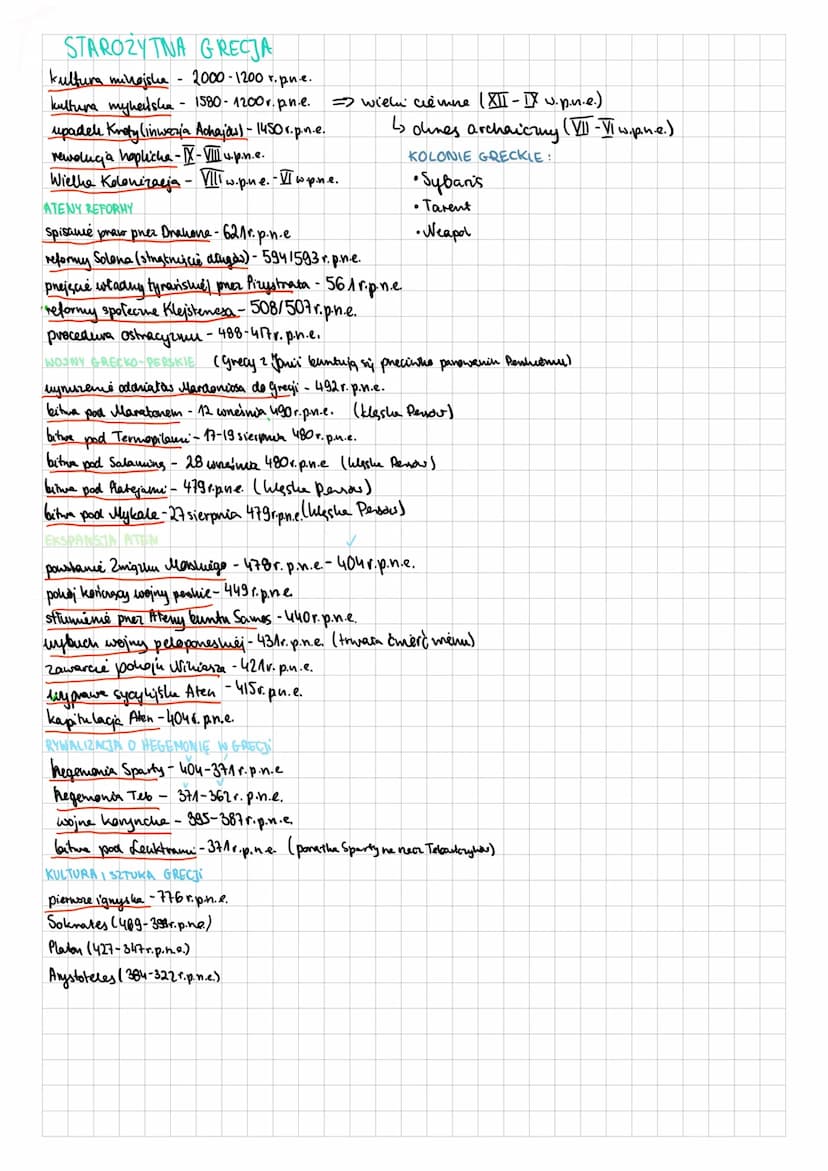 STAROŻYTNA GRECJA
kultura minojska - 2000-1200 r.p.n.e.
kultura mykeńska - 1580-1200 r.p.n.e. => wieki ciemne (XII - IX w.p.n.e.)
upadek Krety (inwazja Achajów) - 1450 r.p.n.e. ↳ okres archaiczny (VII - VI w.p.n.e.)
rewolucja hoplicka - IX - VIII w.p.n.e.
Wielka Kolonizacja - VIII w.p.n.e. - VI w.p.n.e.
KOLONIE GRECKIE:
• Sybaris
• Tarent
• Neapol
ATENY REFORMY
spisanie praw przez Drakona - 621 r.p.n.e
reformy Solona (strząśnięcie długów) - 594/593 r.p.n.e.
przejęcie władzy tyrańskiej przez Pizystrata - 561 r.p.n.e.
reformy społeczne Klejstenesa - 508/507 r.p.n.e.
procedura ostracyzmu - 488-417 r.p.n.e.
WOJNY GRECKO-PERSKIE (Grecy z Jonii buntują się przeciwko panowaniu)
wyruszenie oddziałów Mardoniosa do Grecji - 492 r.p.n.e.
bitwa pod Maratonem - 12 września 490 r.p.n.e. (klęska Persów)
bitwa pod Termopilami - 17-19 sierpnia 480 r.p.n.e.
bitwa pod Salaminą - 28 września 480 r.p.n.e (klęska Persów)
bitwa pod Platejami - 479 r.p.n.e. (klęska Persów)
bitwa pod Mykale - 27 sierpnia 479 r.p.n.e. (klęska Persów)
EKSPANSJA ATEN
powstanie Związku Morskiego - 478 r.p.n.e. - 404 r.p.n.e.
pokój kończący wojny perskie - 449 r.p.n.e.
stłumienie przez Ateny buntu Samos - 440 r.p.n.e.
wybuch wojny peloponeskiej - 431 r.p.n.e. (trwała ćwierć wieku)
zawarcie pokoju Nikiasza - 421 r.p.n.e.
wyprawa sycylijska Aten - 415 r.p.n.e.
kapitulacja Aten - 404 r.p.n.e.
RYWALIZACJA O HEGEMONIĘ W GRECJI
hegemonia Sparty - 404-371 r.p.n.e
hegemonia Teb - 371-362 r.p.n.e.
wojna koryncka - 395-387 r.p.n.e.
bitwa pod Leuktrami - 371 r.p.n.e. (porażka Sparty na rzecz Tebańczyków)
KULTURA I SZTUKA GRECJI
pierwsze igrzyska - 776 r.p.n.e.
Sokrates (469-399 r.p.n.e)
Platon (427-347 r.p.n.e.)
Arystoteles (384-322 r.p.n.e.)